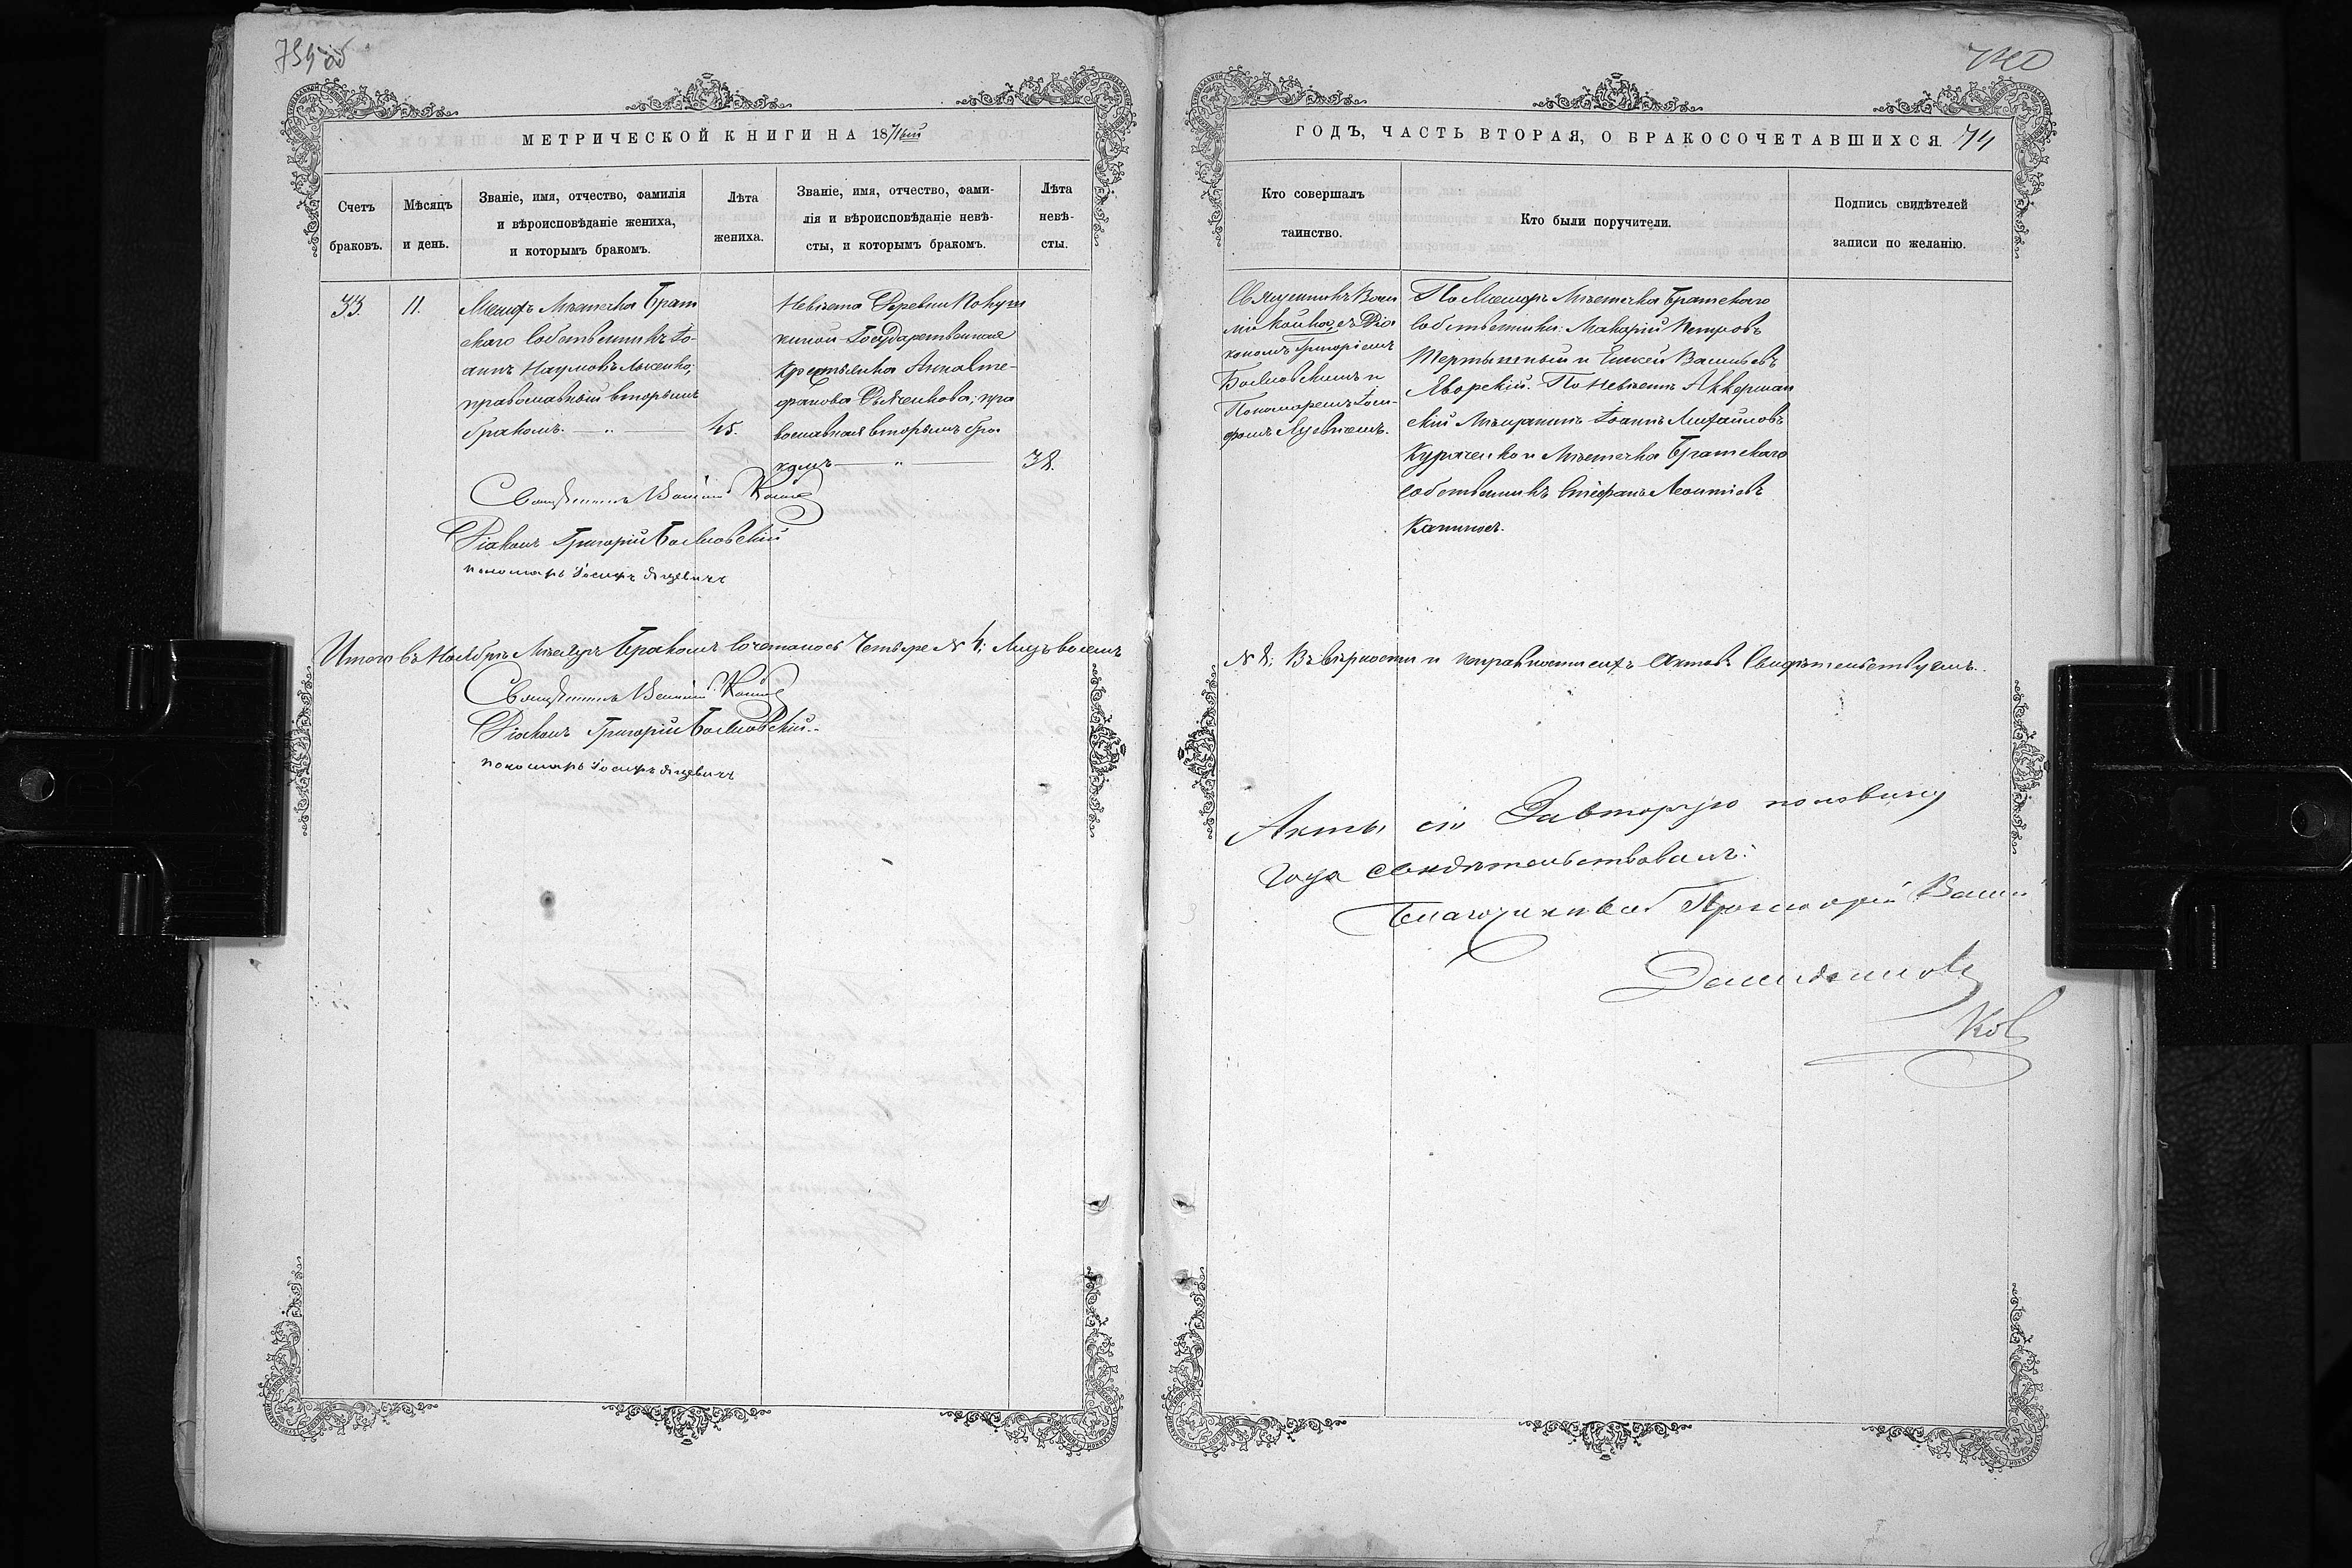 739 об
740
МЕТРИЧЕСКОЙ КНИГИ НА 1871ый
Счетъ браковъ.
Мѣсяцъ и день.
Званіе, имя, отчество, фамилія
и вѣроисповѣданіе жениха,
и которымъ бракомъ.
Лѣта
жениха.
Званіе, имя, отчество, фами-
лія и вѣроисповѣданіе невѣ-
сты, и которымъ бракомъ.
Лѣта
невѣ-
сты.
33.
11.
Женихъ Мѣстечка Брат
скаго собственникъ Іо-
аннъ Наумовъ Лысенко,
православный вторымъ
бракомъ. — „ —
45.
Невѣста Деревни
Государственная
крестьянка Анна Сте-
фанова пра
вославная вторымъ бра-
комъ — „ —
38.
Священникъ
Діаконъ Григорій
пономарь Іосифъ
Итого въ Ноябрѣ Мѣсяцѣ Бракомъ сочеталось Четыре № 4; Лицъ восемь
Священникъ
Діаконъ Григорій
пономарь Іосифъ
ГОДЪ, ЧАСТЬ ВТОРАЯ, О БРАКОСОЧЕТАВШИХСЯ. 74
Кто совершалъ
таинство.
Кто были поручители.
Подпись свидѣтелей
записи по желанію.
Священникъ Васи
лій съ Діа
кономъ Григоріемъ
и
Пономаремъ Іоси-
фомъ
По Женихѣ Мѣстечка Братскаго
собственники: Макарій Петровъ
Тертышный и Васильевъ
Яворскій. По Невѣстѣ Аккерман
скій Мѣщанинъ Іоаннъ Михайловъ
Куряченко и Мѣстечка Братскаго
собственникъ Стефанъ Леонтіевъ
Капиносъ.
№ 8; Въ вѣрности и исправности сихъ Актовъ Свидѣтельствуемъ.
Акты сіи За вторую половину
года свидѣтельствовалъ:
Благочинный